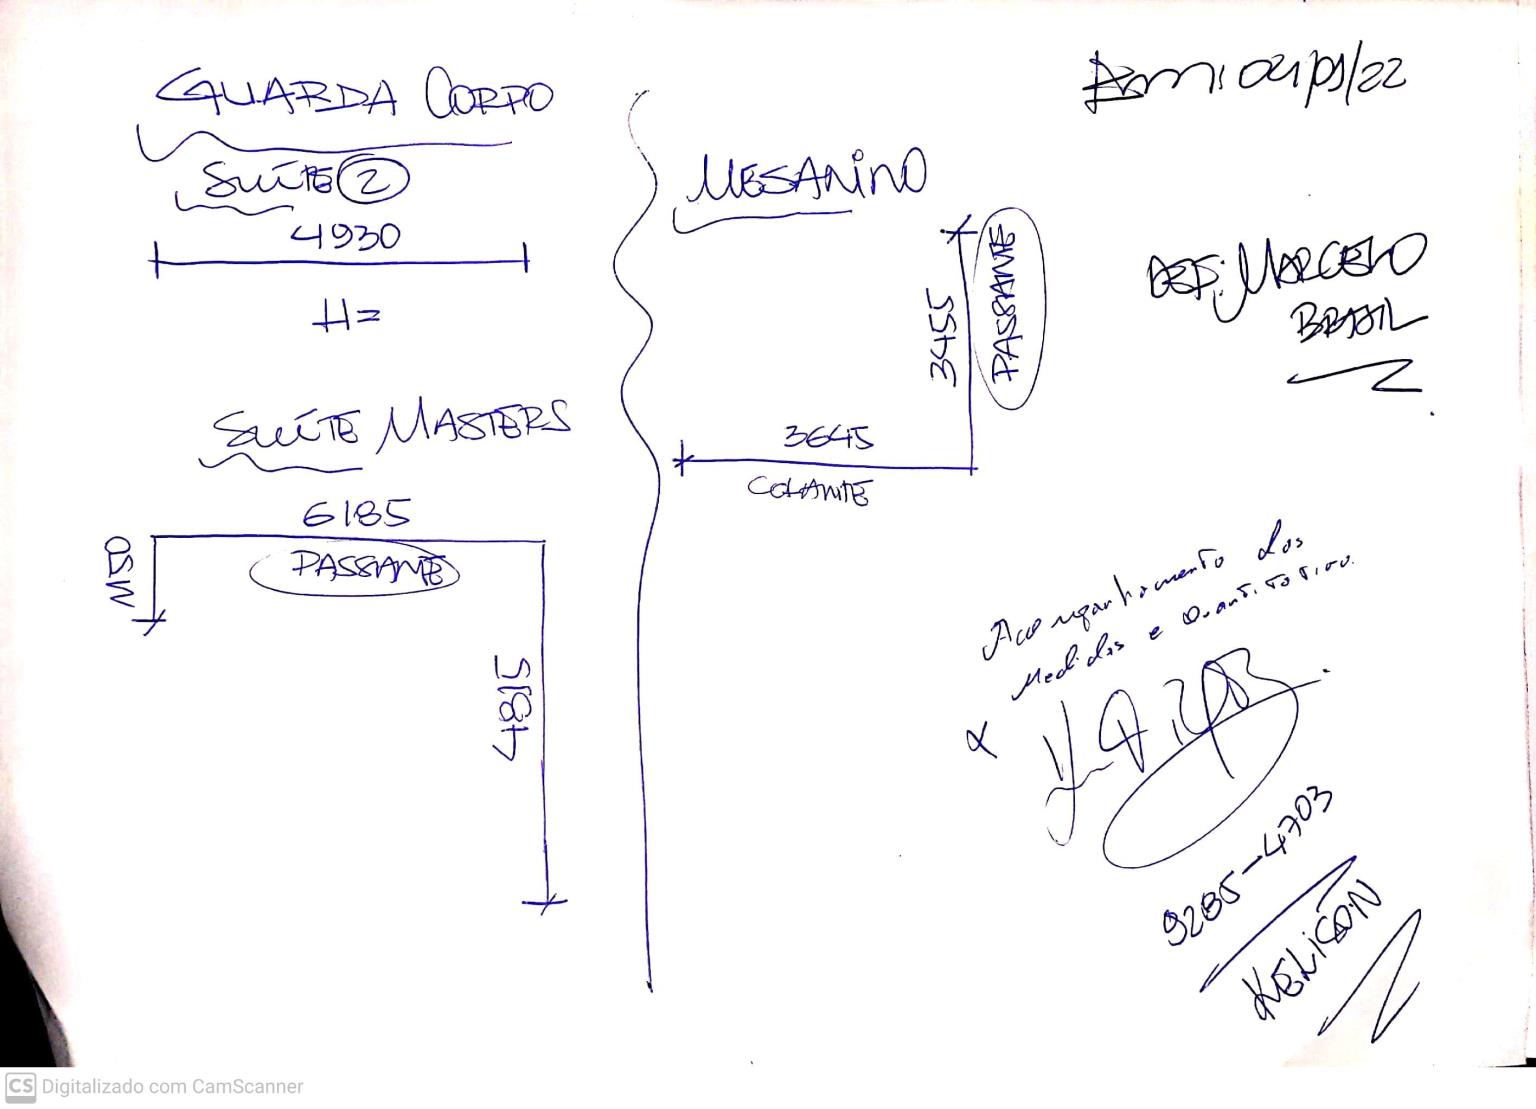 GUARDA CORPO
SUÍTE 2
4930
H=
SUÍTE MASTERS
6185
PASSANTE
4815
MESANINO
3455
PASSANTE
3645
COLANTE
04/01/22
REF: MARCELO
BRASIL
Acompanhamento das
Medidas e Quantitativo.
9285-4703
KELISON
CS Digitalizado com CamScanner